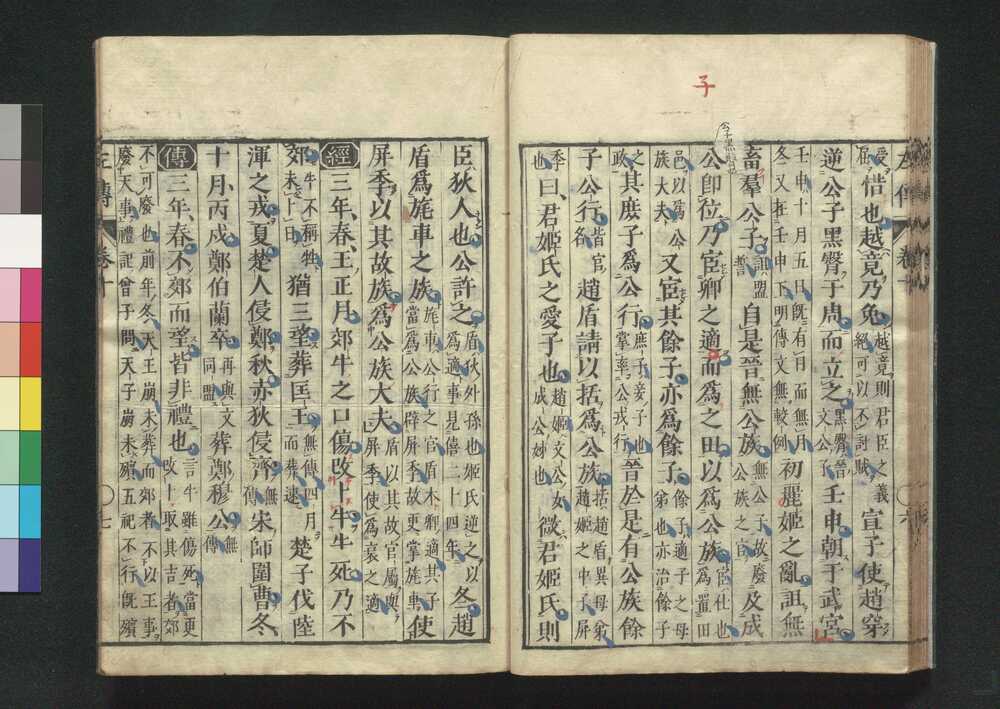 子
左傳 卷十 六
受屈惜也越竟乃免越竟則君臣之義絶可以不討賊宣子使趙穿
逆公子黑臀于周而立之黑臀晉文公子壬申朝于武宮
壬申十月五日既有日而無月冬又在壬申下明傳文無較例初麗姬之亂詛無
畜羣公子詛盟誓自是晉無公族無公子故廢公族之官及成
公卽位乃宦卿之適而爲之田以爲公族宦仕也爲置田
邑以爲公族大夫又宦其餘子亦爲餘子餘子適子之母弟也亦治餘子
之政其庶子爲公行庶子妾子也掌率公戎行晉於是有公族餘
子公行皆官名趙盾請以括爲公族括趙盾異母弟趙姬之中子屏
季也曰君姬氏之愛子也趙姬文公女成公姊也微君姬氏則
臣狄人也公許之盾狄外孫也姬氏逆之以爲適事見僖二十四年冬趙
盾爲旄車之族旄車公行之官盾本卿適其子當爲公族辟屏季故更掌旄車使
屏季以其故族爲公族大夫盾以其故官屬與屏季使爲衰之適
經三年春王正月郊牛之口傷改卜牛牛死乃不
郊牛不稱牲未卜日猶三望葬匡王無傳四月而葬速楚子伐陸
渾之戎夏楚人侵鄭秋赤狄侵齊無傳宋師圍曹冬
十月丙戌鄭伯蘭卒再與文同盟葬鄭穆公無傳
傳三年春不郊而望皆非禮也言牛雖傷死當更改卜取其吉者郊
不可廢也前年冬天王崩未葬而郊者不以王事廢天事禮記曾子問天子崩未殯五祀不行既殯
左傳 卷十 七